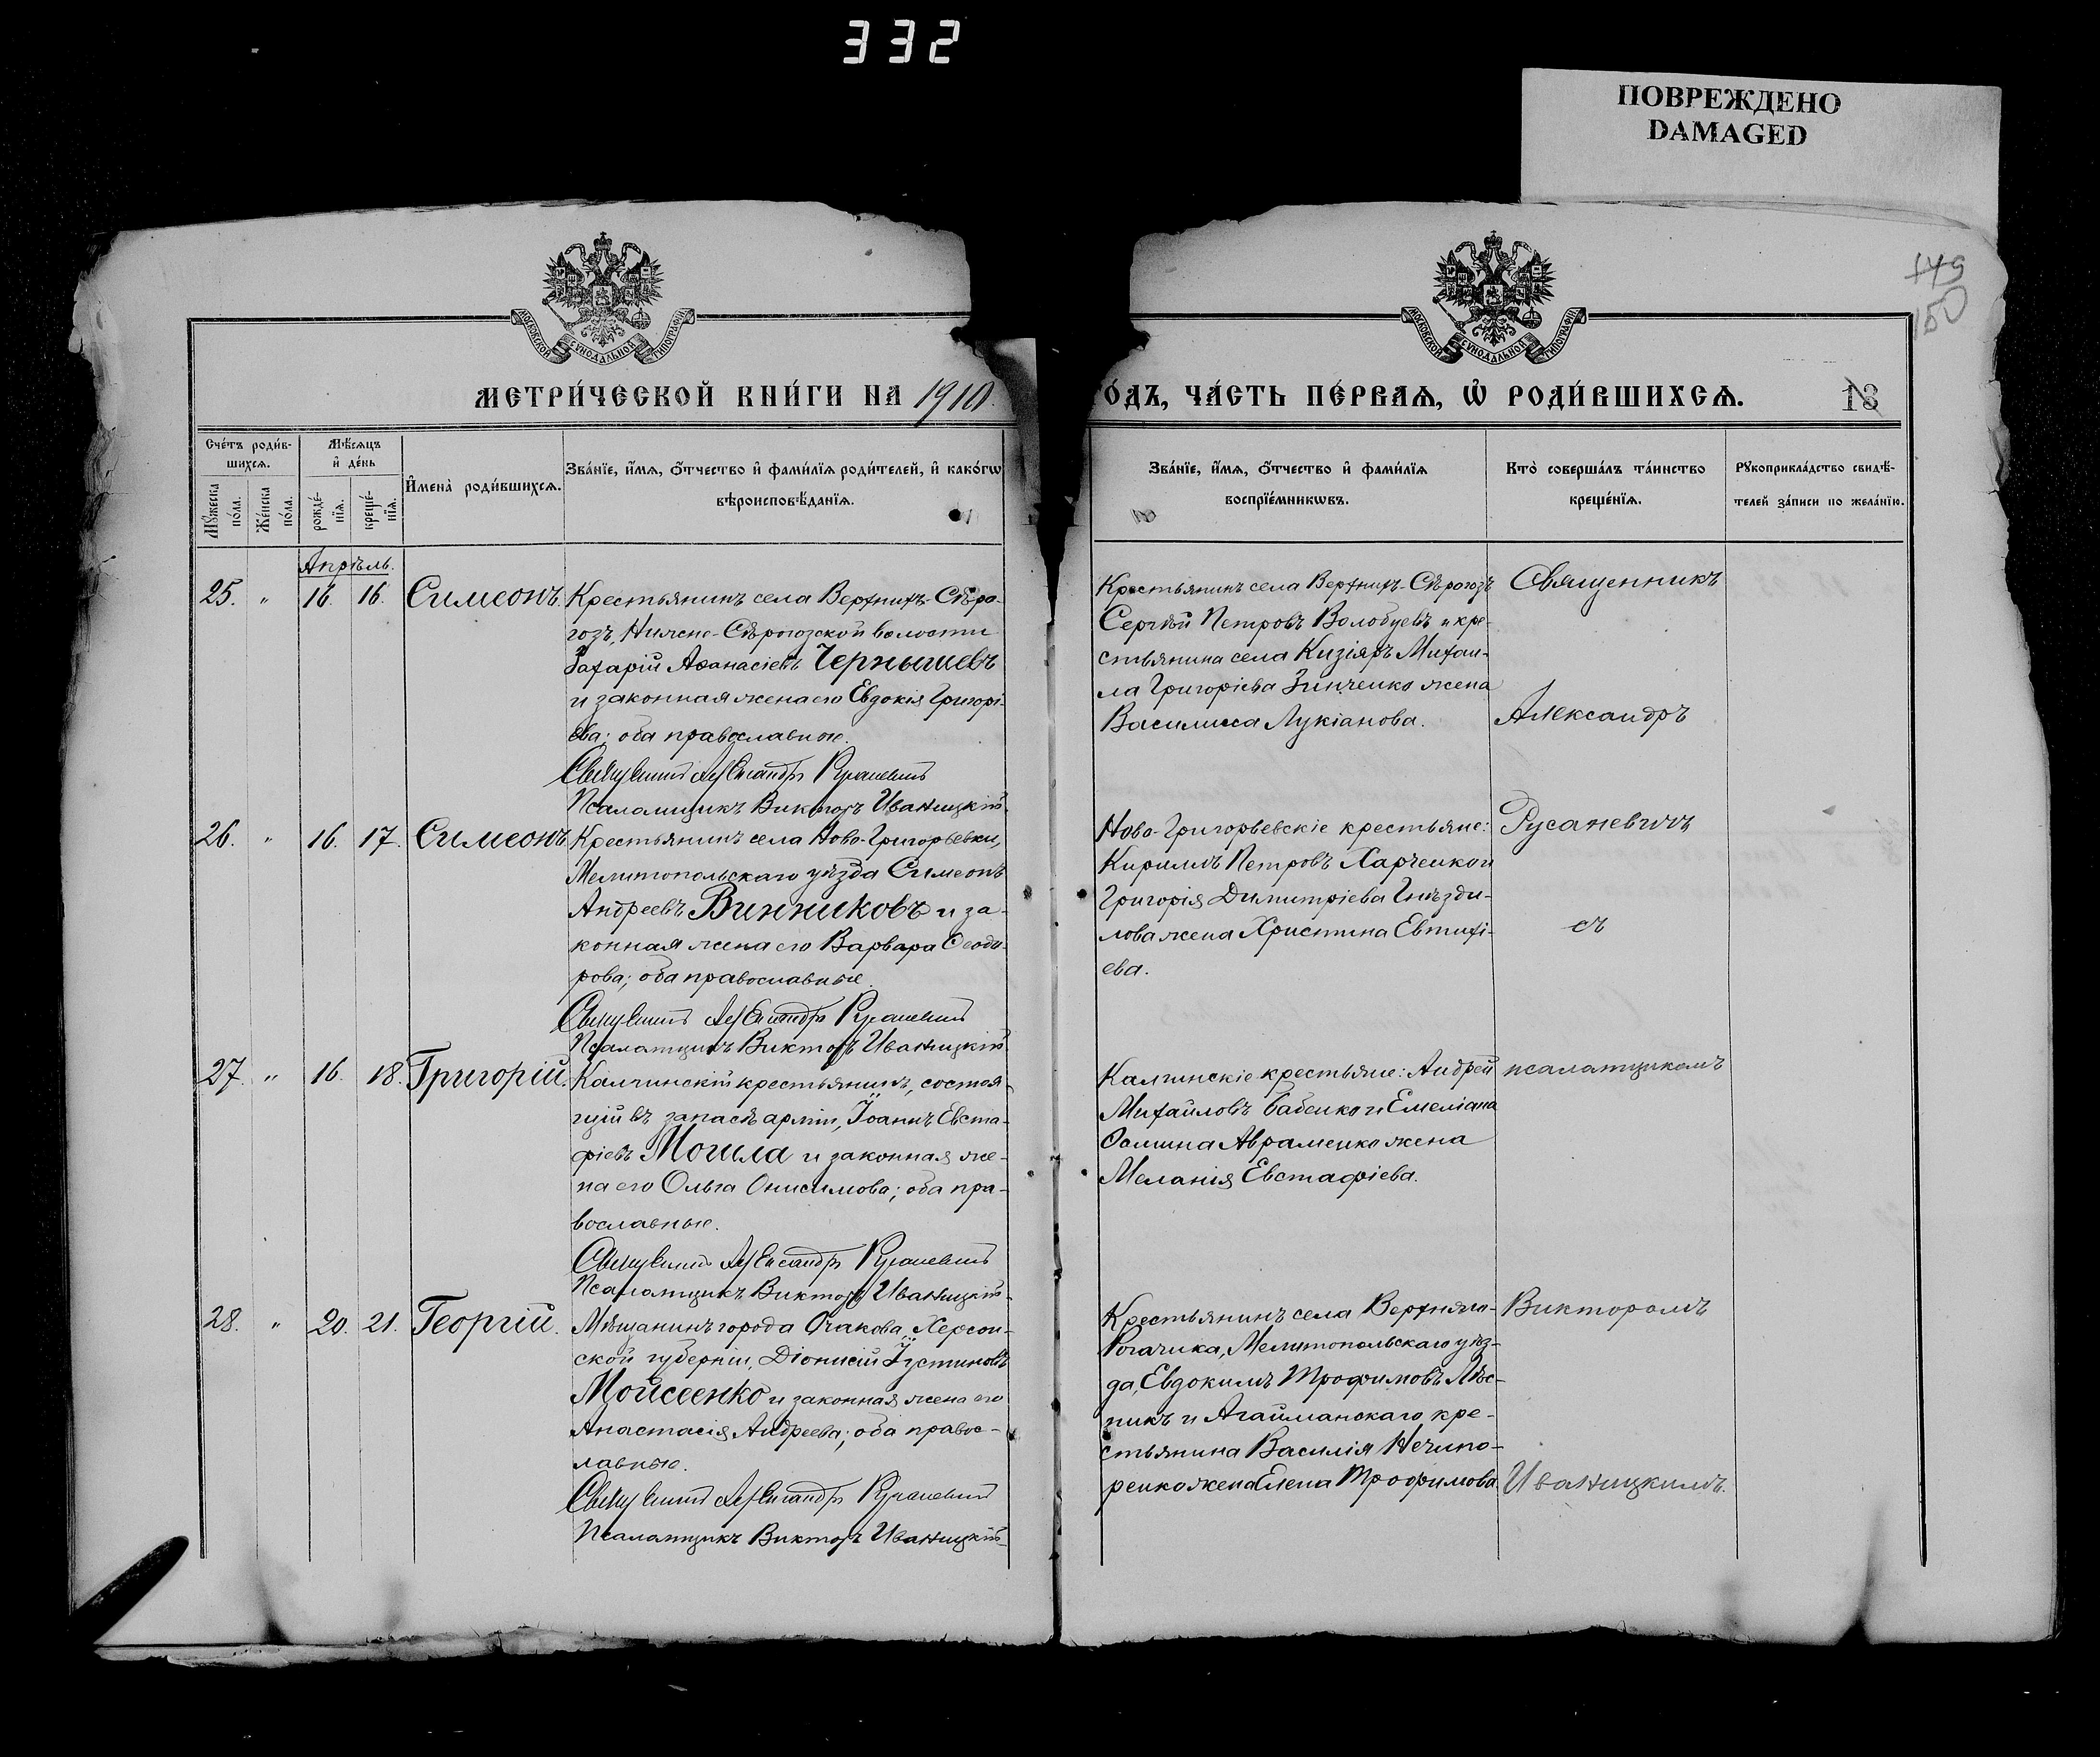 332
ПОВРЕЖДЕНО
DAMAGED
149
150
МОСКОВСКОЙ СѴНОДАЛЬНОЙ ТИПОГРАФІИ
МОСКОВСКОЙ СѴНОДАЛЬНОЙ ТИПОГРАФІИ
МЕТРИ́ЧЕСКОЙ КНИ́ГИ НА 1910
ГО́ДЪ, ЧА́СТЬ ПЕ́РВАѦ, Ѽ РОДИ́ВШИХСѦ.
13
Сче́тъ роди́в-
шихсѧ.
Мѣ́сѧцъ
и҆ де́нь
Мꙋ́жеска по́ла.
Же́нска по́ла.
рожде́-нїѧ.
креще́-нїѧ.
И҆мена̀ роди́вшихсѧ.
Зва́нїе, и҆́мѧ, ѻ҆́тчество и҆ фами́лїѧ роди́телей, и҆ како́гѡ
вѣроисповѣ́данїѧ.
Зва́нїе, и҆́мѧ, ѻ҆́тчество и҆ фами́лїѧ
воспрїе́мникѡвъ.
Кто̀ соверша́лъ та́инство
креще́нїѧ.
Рꙋкоприкла́дство свидѣ́-
телей за́писи по жела́нїю.
Апрѣль.
25. " 16. 16. Симеонъ.
Крестьянинъ села Верхнихъ-Сѣро-
гозъ, Нижне-Сѣрогозской волости
Захарій Аѳанасіевъ Чернышевъ
и законная жена его Евдокія Григорі-
ева; оба православные.
Священникъ Александръ Русаневичъ
Псаломщикъ Викторъ Иваницкій
Крестьянинъ села Верхнихъ-Сѣрогозъ
Сергѣй Петровъ Волобуевъ и кре-
стьянина села Кизіяръ Михаи-
ла Григоріева Зинченко жена
Василисса Лукіанова.
Священникъ
Александръ
26. " 16. 17. Симеонъ
Крестьянинъ села Ново-Григорьевки,
Мелитопольскаго уѣзда Симеонъ
Андреевъ Винниковъ и за-
конная жена его Варвара Ѳеодо-
рова; оба православные.
Священникъ Александръ Русаневичъ
Псаломщикъ Викторъ Иваницкій
Ново-Григорьевскіе крестьяне:
Кириллъ Петровъ Харченко и
Григорія Димитріева Гнѣзди-
лова жена Христина Евтихі-
ева.
Русаневичъ
съ
27. " 16. 18. Григорій.
Калгинскій крестьянинъ, состоя-
щій въ запасѣ арміи, Іоаннъ Евста-
фіевъ Могила и законная же-
на его Ольга Онисимова; оба пра-
вославные.
Священникъ Александръ Русаневичъ
Псаломщикъ Викторъ Иваницкій
Калгинскіе крестьяне: Андрей
Михайловъ Бабенко и Емеліана
Авраменко жена
Меланія Евстафіева.
псаломщикомъ
28. " 20. 21. Георгій.
Мѣщанинъ города Очакова, Херсон-
ской губерніи, Діонисій Іустиновъ
Мойсеенко и законная жена его
Анастасія Андреева; оба правос-
лавные.
Священникъ Александръ Русаневичъ
Псаломщикъ Викторъ Иваницкій
Крестьянинъ села Верхняго-
Рогачика, Мелитопольскаго уѣз-
да, Евдокимъ Трофимовъ Лѣс-
никъ и Агайманскаго кре-
стьянина Василія Нечипо-
ренко жена Елена Трофимова.
Викторомъ
Иваницкимъ.